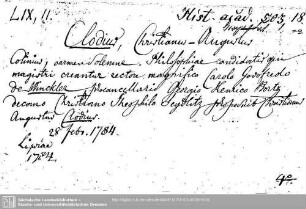 LIX, 11. Hist. acad. 505, 18
Clodius, Christianus-Augustus
Carmen solemne. Philosophiae candidatis qui
magistri creantur rectore magnifico Carolo Godofredo
de Winckler procancellario Georgio Henrico Bortz
decano Christiano Theophilo Seydlitz proposuit Christianus
Augustus Clodius.
28 febr. 1784.
Lipsiae
1784.
4o.